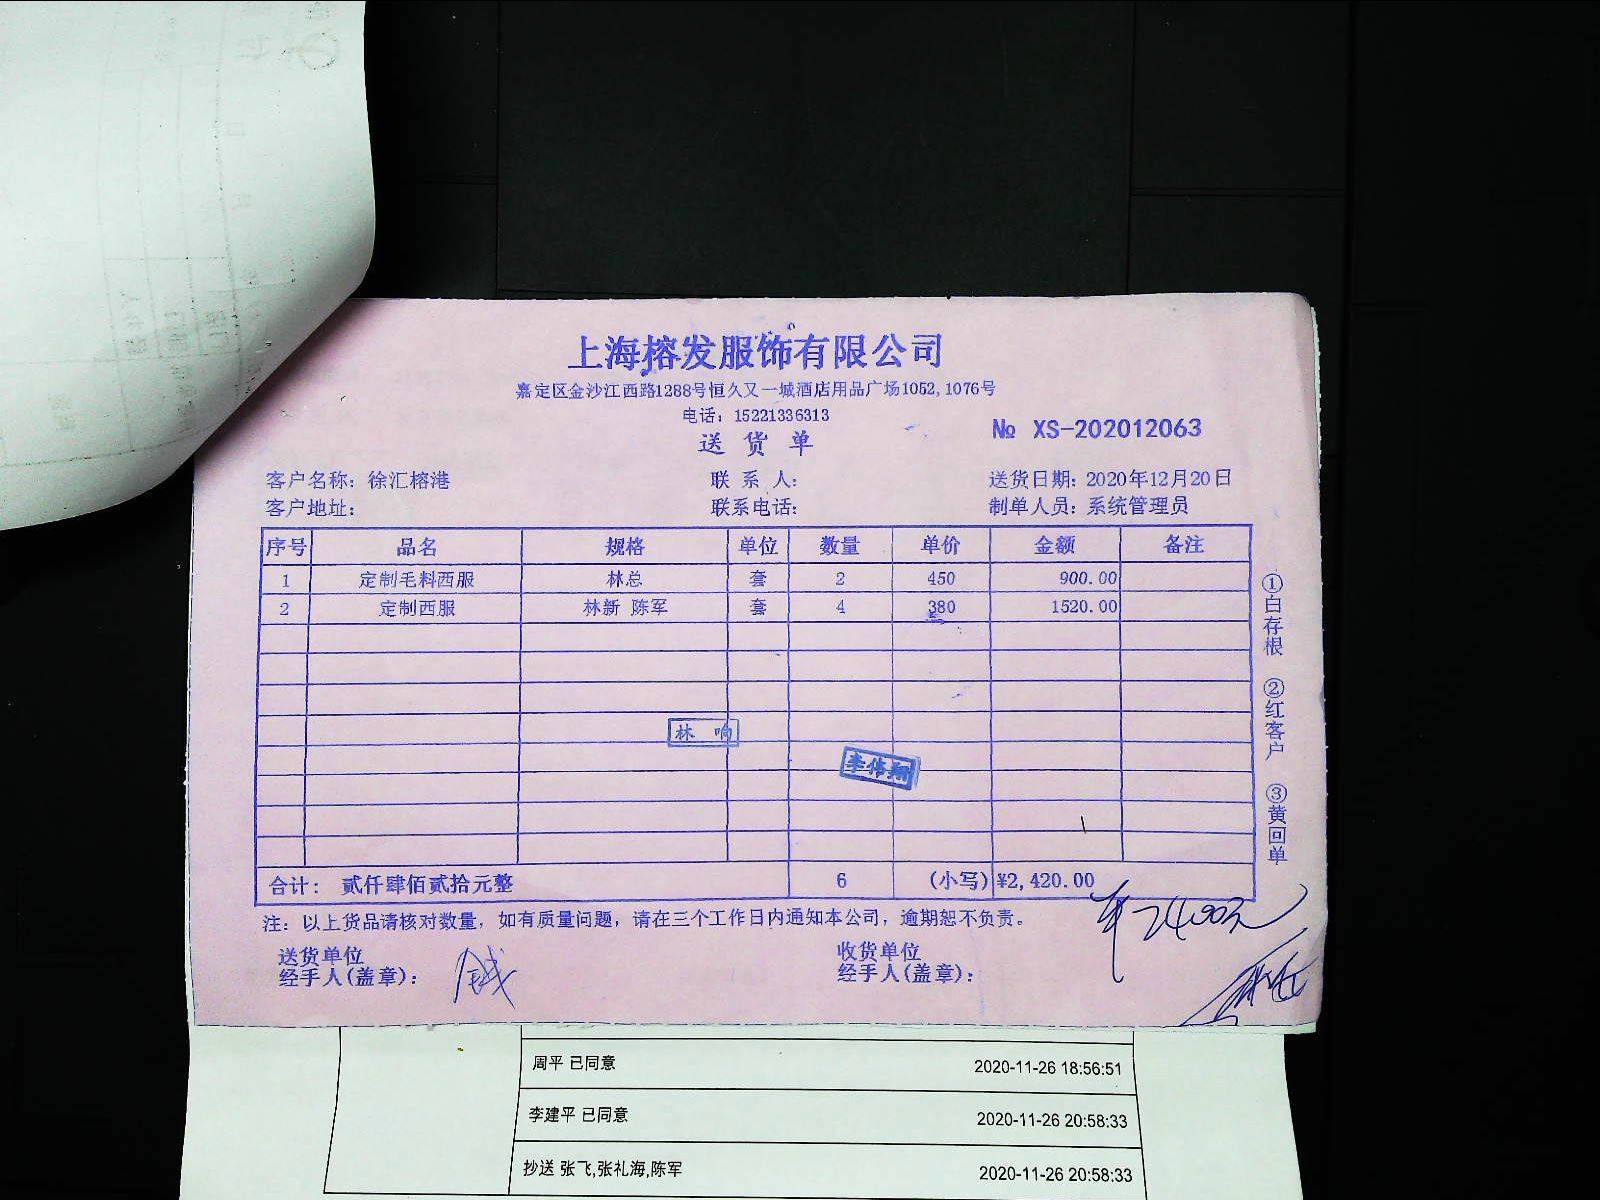 上海榕发服饰有限公司
嘉定区金沙江西路1288号恒久又一城酒店用品广场1052,1076号
电话：15221336313
送 货 单
№ XS-202012063
客户名称：徐汇榕港 联 系 人： 送货日期：2020年12月20日
客户地址： 联系电话： 制单人员：系统管理员
序号 品名 规格 单位 数量 单价 金额 备注
1 定制毛料西服 林总 套 2 450 900.00
2 定制西服 林新 陈军 套 4 380 1520.00
林 响
李伟翔
合计： 贰仟肆佰贰拾元整 6 (小写) ¥2,420.00
①白存根 ②红客户 ③黄回单
2400元
注：以上货品请核对数量，如有质量问题，请在三个工作日内通知本公司，逾期恕不负责。
送货单位 收货单位
经手人(盖章)： 经手人(盖章)：
周平 已同意 2020-11-26 18:56:51
李建平 已同意 2020-11-26 20:58:33
抄送 张飞,张礼海,陈军 2020-11-26 20:58:33